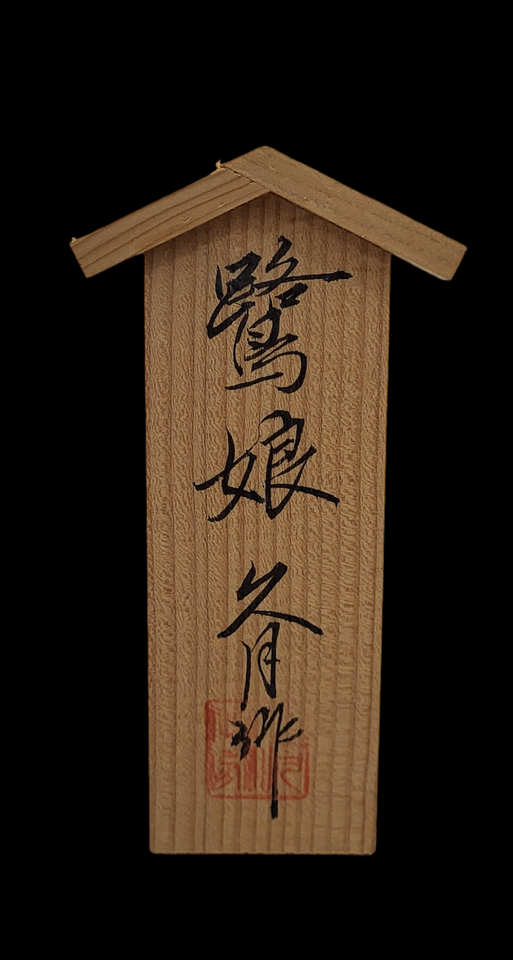 鷺娘 久月作